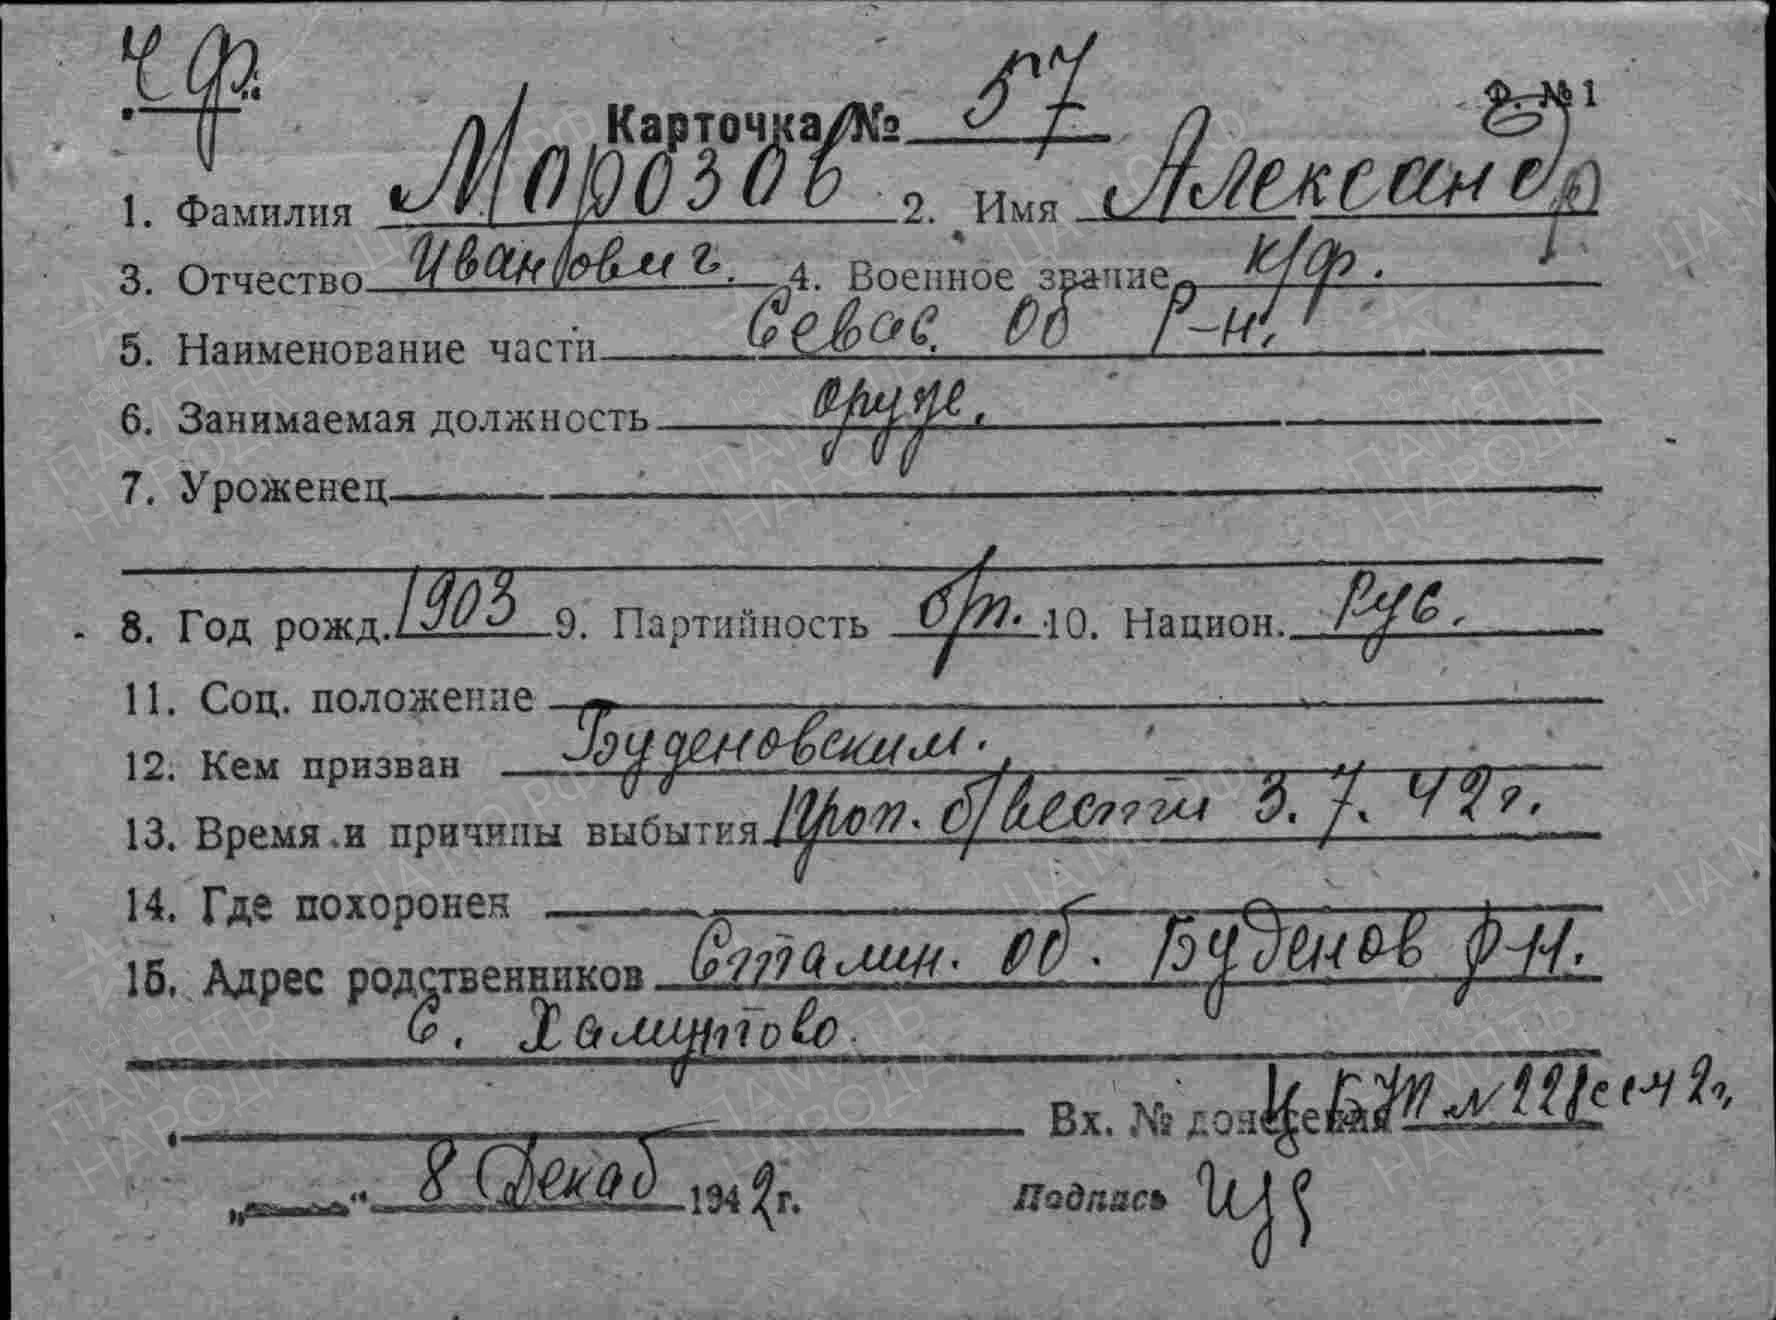 ЧФ.
Карточка № 57
Ф. №1
1. Фамилия Морозов 2. Имя Александр
3. Отчество Иванович. 4. Военное звание к/ф.
5. Наименование части Севас. Об Р-н.
6. Занимаемая должность
7. Уроженец
8. Год рожд. 1903 9. Партийность б/п. 10. Национ. Рус.
11. Соц. положение
12. Кем призван Буденовским.
13. Время и причины выбытия Проп. б/вести 3.7.42г.
14. Где похоронен
15. Адрес родственников Сталин. об. Буденов р-н.
С.
Вх. № донесения
8 Декаб 1942г.
Подпись